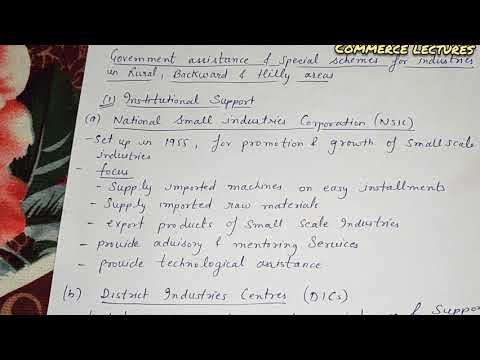 COMMERCE LECTURES
Government assistance & special schemes for industries
in Rural, Backward & Hilly areas
(1) Institutional Support
(a) National Small industries Corporation (NSIC)
- Set up in 1955, for promotion & growth of small scale
industries
- focus
- Supply imported machines on easy installments
- Supply imported raw materials
- export products of Small Scale Industries
- provide advisory & mentoring Services
- provide technological assistance
(b) District Industries Centres (DICs)
& Support